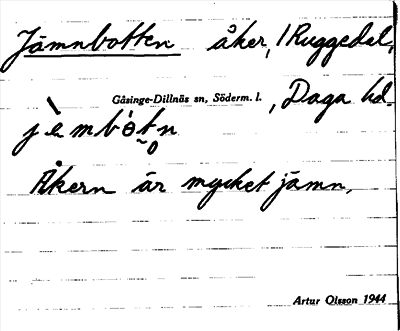 Jämnbotten åker, i Ruggedal,
Gåsinge-Dillnäs sn, Söderm. l., Daga hd.
jèmbòtn̥
Åkern är mycket jämn.
Artur Olsson 1944